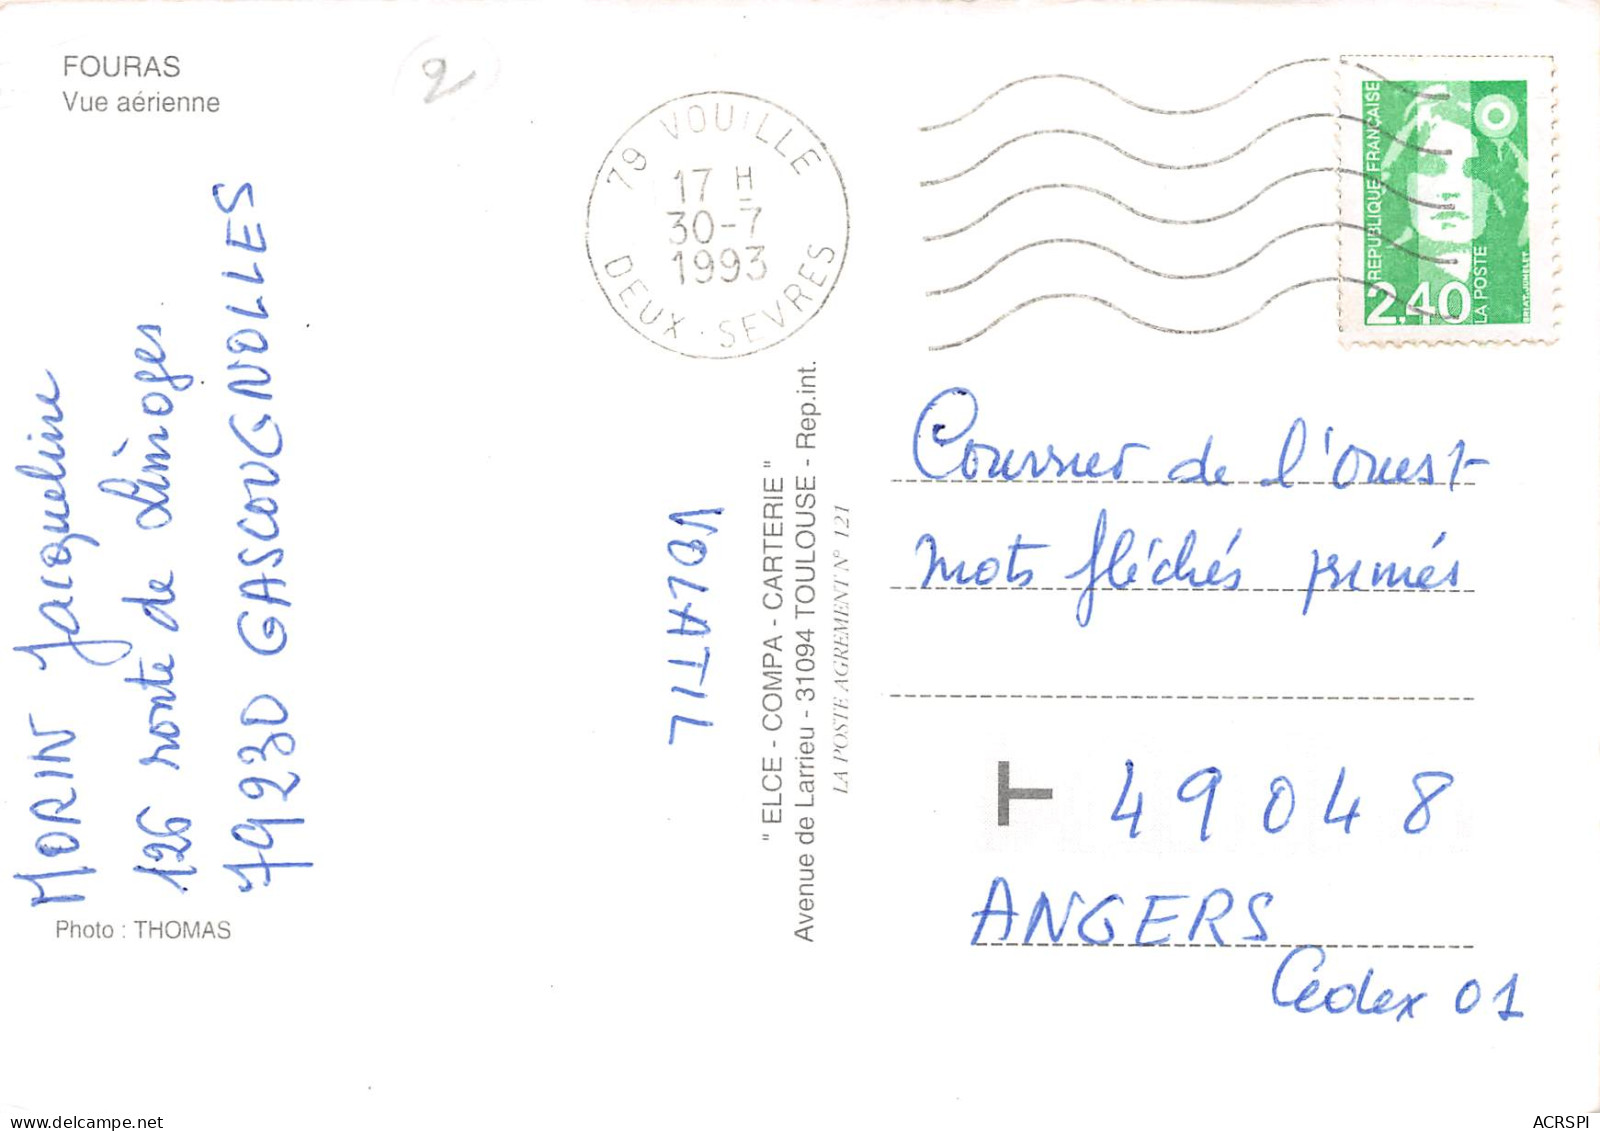 FOURAS
Vue aérienne
2
MORIN Jacqueline
126 route de Limoges
79230 GASCOUGNOLLES
Photo : THOMAS
79 VOUILLE
17 H
30-7
1993
DEUX - SEVRES
VOLATIL
" ELCE - COMPA - CARTERIE "
Avenue de Larrieu - 31094 TOULOUSE - Rep.int.
LA POSTE AGREMENT N° 121
REPUBLIQUE FRANÇAISE
2,40
LA POSTE
BRIAT-JUMELET
Courrier de l'ouest
mots fléchés primés
T 49048
ANGERS
Cedex 01
delcampe.net
ACRSPI